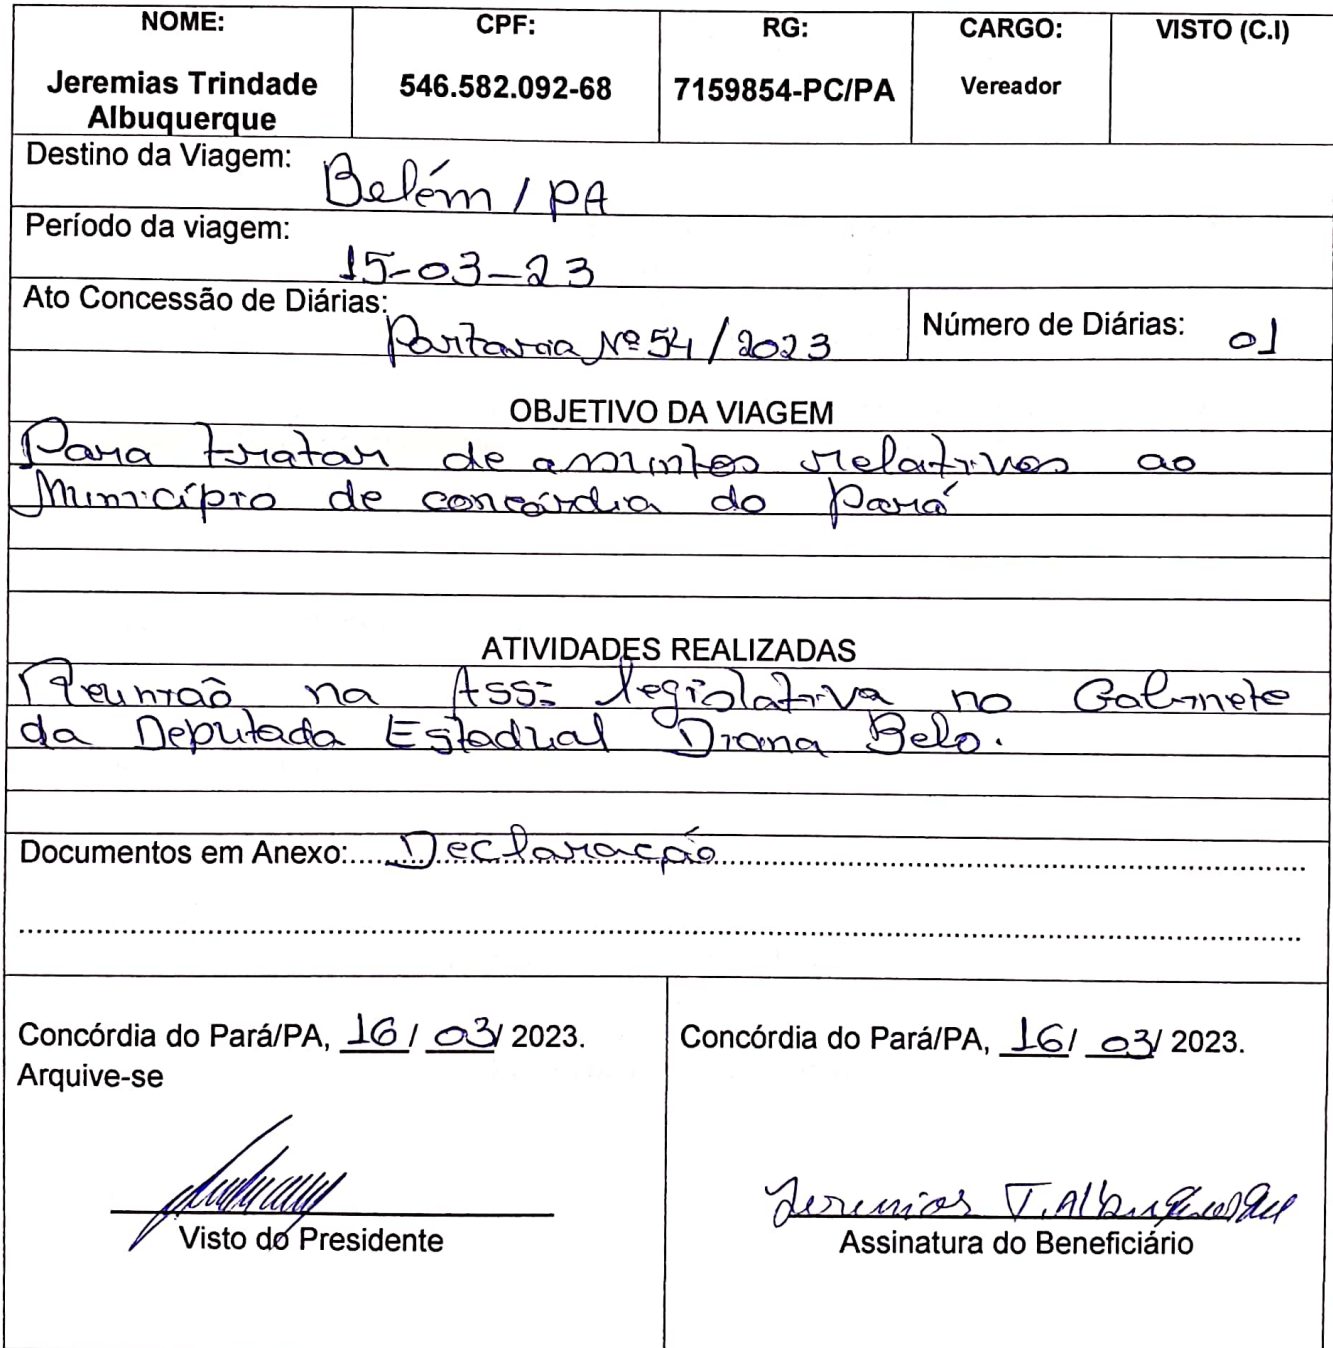 NOME: CPF: RG: CARGO: VISTO (C.I)
Jeremias Trindade 546.582.092-68 7159854-PC/PA Vereador
Albuquerque
Destino da Viagem: Belém / PA
Período da viagem: 15-03-23
Ato Concessão de Diárias: Portaria Nº 54 / 2023 Número de Diárias: 01
OBJETIVO DA VIAGEM
Para tratar de assuntos relativos ao
Município de concórdia do Pará
ATIVIDADES REALIZADAS
Reunião na Ass: legislativa no Gabinete
da Deputada Estadual Diana Belo.
Documentos em Anexo:.....Declaração
Concórdia do Pará/PA, 16 / 03 / 2023. Concórdia do Pará/PA, 16 / 03 / 2023.
Arquive-se
Jeremias T. Albuquerque
Visto do Presidente Assinatura do Beneficiário